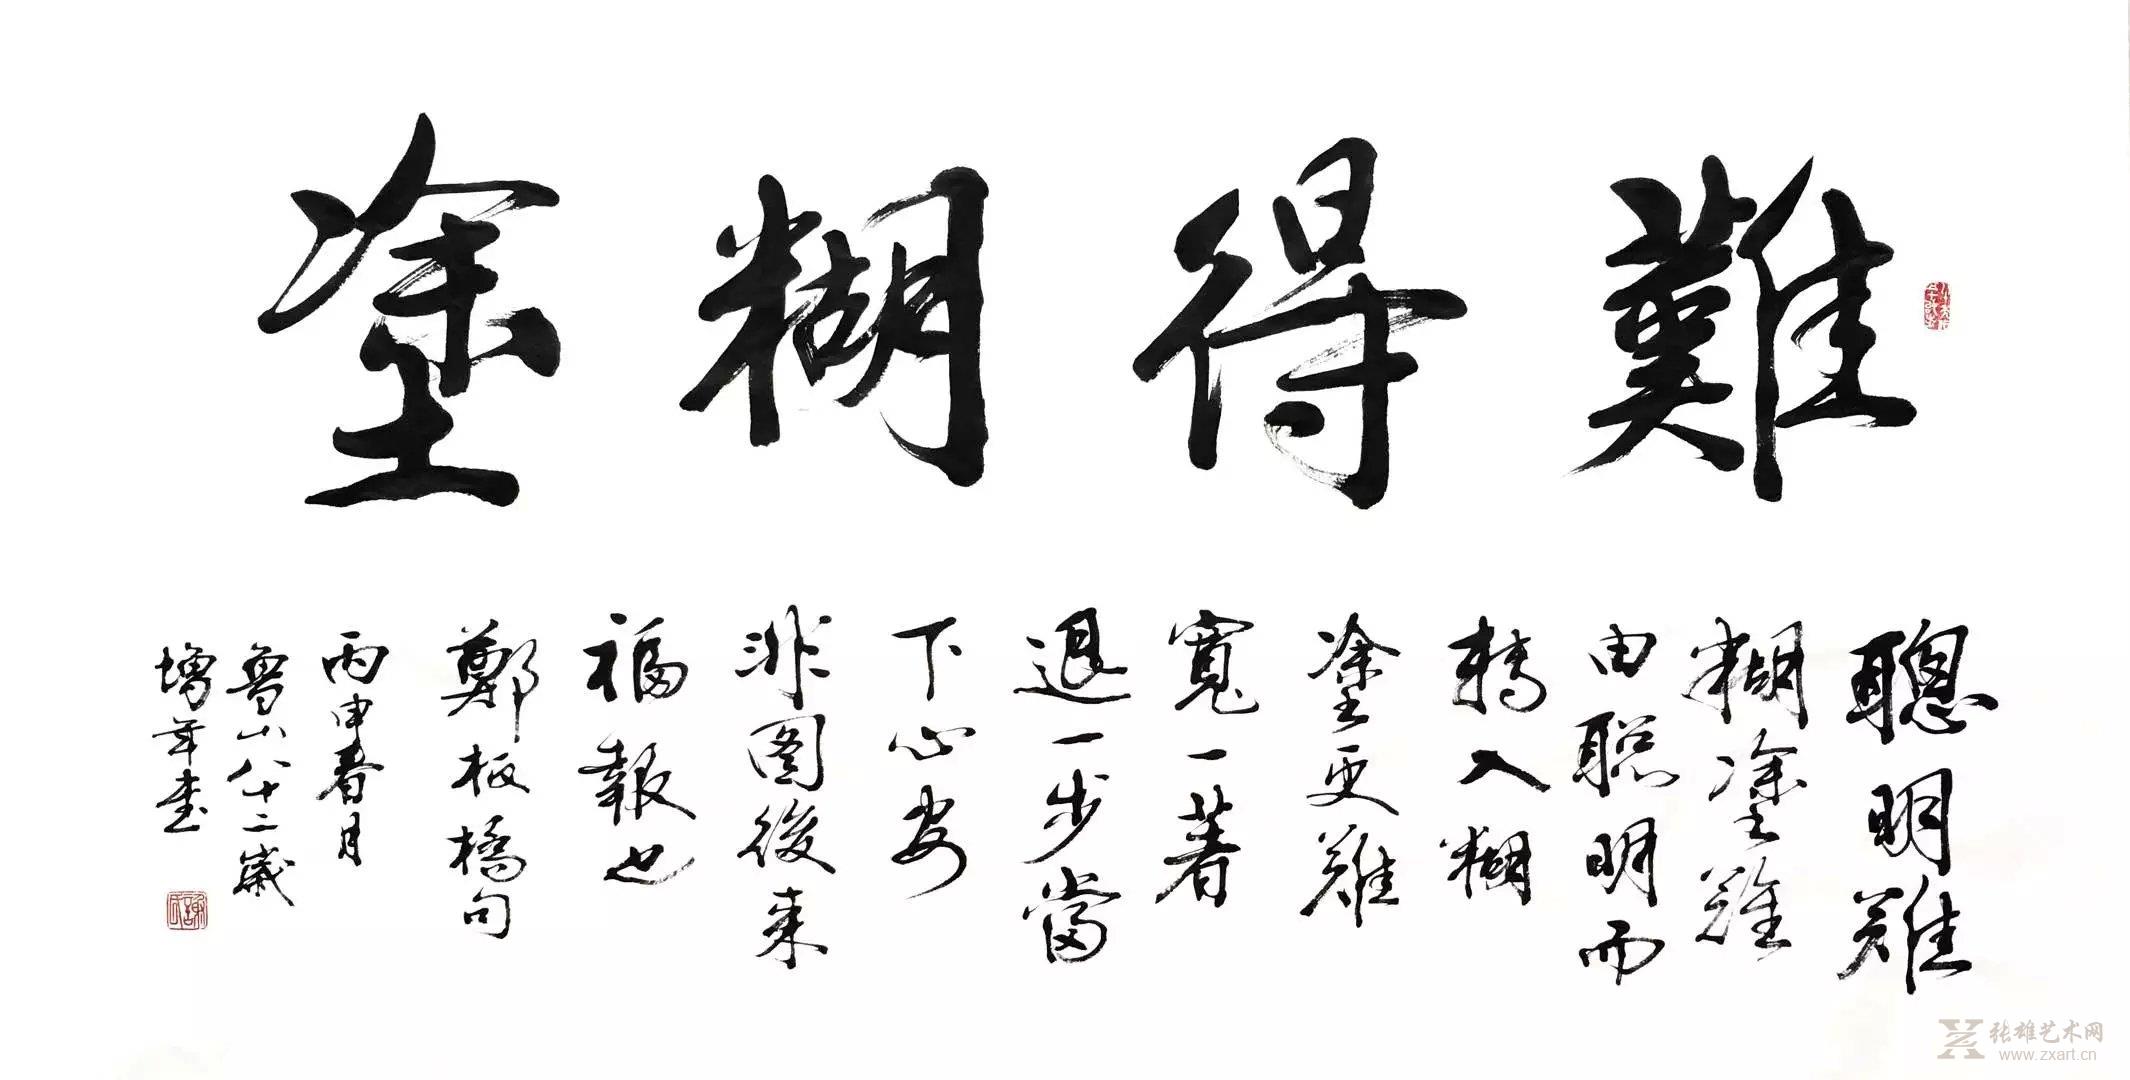 難得糊塗
聰明難
糊塗難
由聰明而
轉入糊
塗更難
寬一著
退一步當
下心安
非圖後来
福報也
鄭板橋句
丙申春月
魯山八十二歲
增年書
张雄艺术网
www.zxart.cn